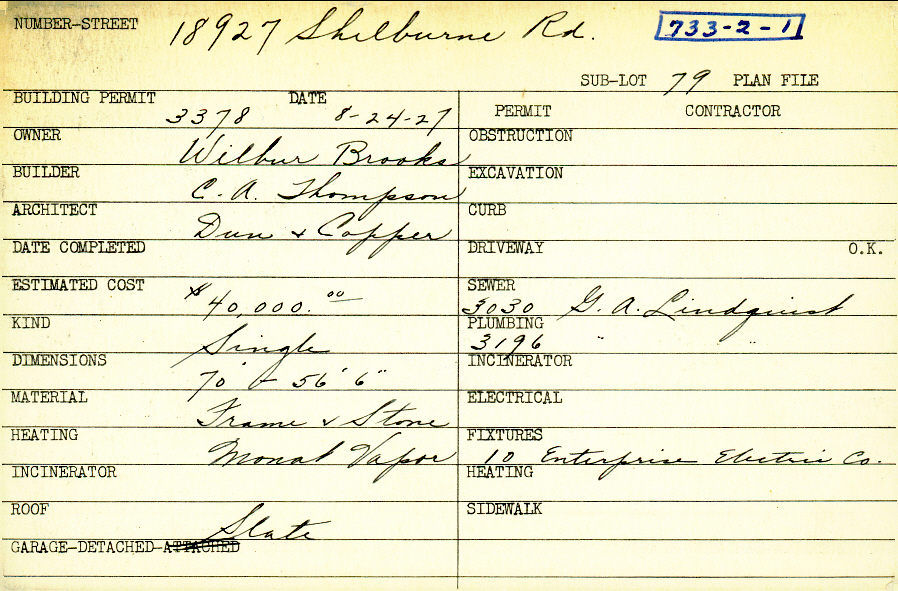 NUMBER-STREET 18927 Shelburne Rd. 733-2-1
SUB-LOT 79 PLAN FILE
BUILDING PERMIT 3378 DATE 8-24-27
PERMIT CONTRACTOR
OWNER Wilbur Brooks
OBSTRUCTION
BUILDER C. A. Thompson
EXCAVATION
ARCHITECT Dun & Copper
CURB
DATE COMPLETED
DRIVEWAY O.K.
ESTIMATED COST $40,000.00
SEWER 3030 G. A. Lindquist
KIND Single
PLUMBING 3196 " "
DIMENSIONS 70' + 56' 6"
INCINERATOR
MATERIAL Frame & Stone
ELECTRICAL
HEATING Monat Vapor
FIXTURES 10 Enterprise Electric Co.
INCINERATOR
HEATING
ROOF Slate
SIDEWALK
GARAGE-DETACHED-ATTACHED